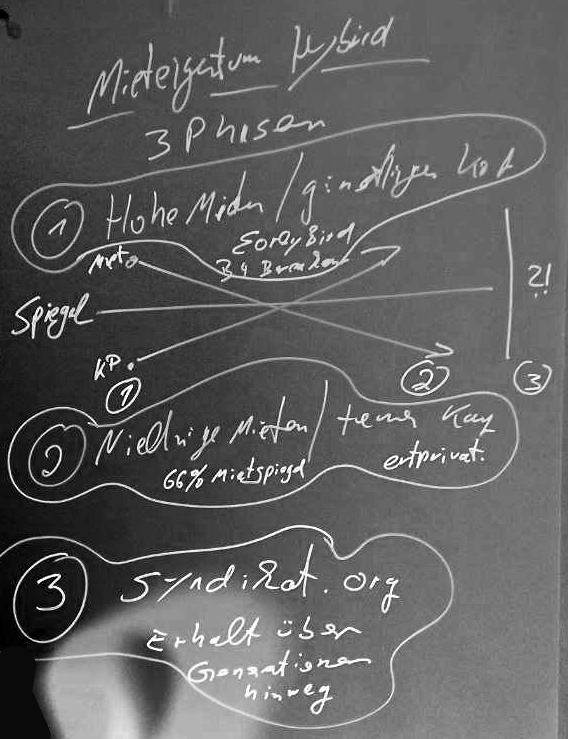 Mieteigentum Hybrid
3 Phasen
1 Hohe Mieten / günstiger
Early Bird
Miete
Spiegel
?!
KP.
1
2
3
2 Niedrige Mieten / teurer Kauf
66% Mietspiegel
entprivat.
3 Syndikat.org
Erhalt über
Generationen
hinweg